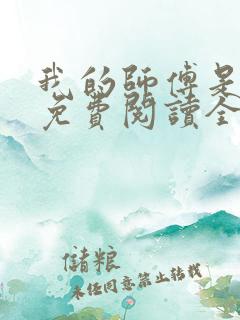 我的師傅是
免費閱讀全
儲粮
未经同意禁止转载